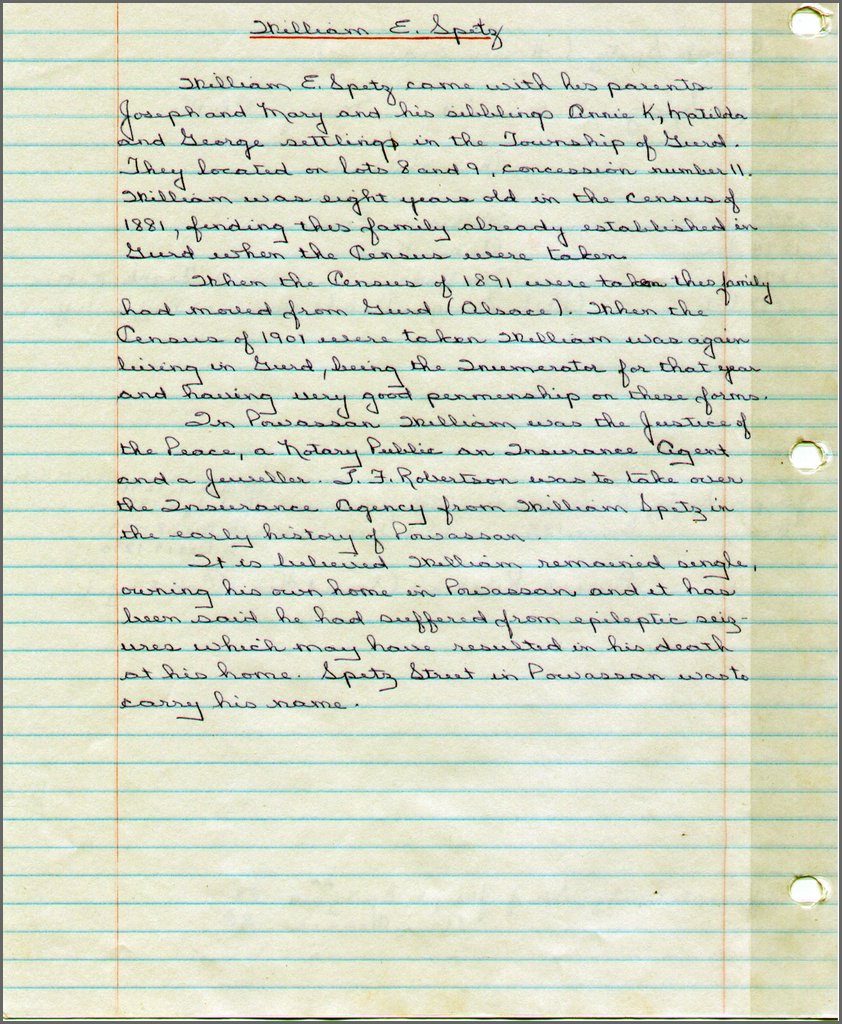 William E. Spetz
William E. Spetz came with his parents
Joseph and Mary and his sibblings Annie K, Matilda
and George settlings in the Township of Gurd.
They located on lots 8 and 9, concession number 11.
William was eight years old in the census of
1881, finding this family already established in
Gurd when the Census were taken.
When the Census of 1891 were taken this family
had moved from Gurd (Alsace). When the
Census of 1901 were taken William was again
living in Gurd, being the Inumerator for that year
and having very good penmenship on these forms.
In Powassan William was the Justice of
the Peace, a Notary Public an Insurance Agent
and a Jeweller. T. F. Robertson was to take over
the Insurance Agency from William Spetz in
the early history of Powassan.
It is believed William remained single,
owning his own home in Powassan and it has
been said he had suffered from epileptic seiz-
ures which may have resulted in his death
at his home. Spetz Street in Powassan was to
carry his name.